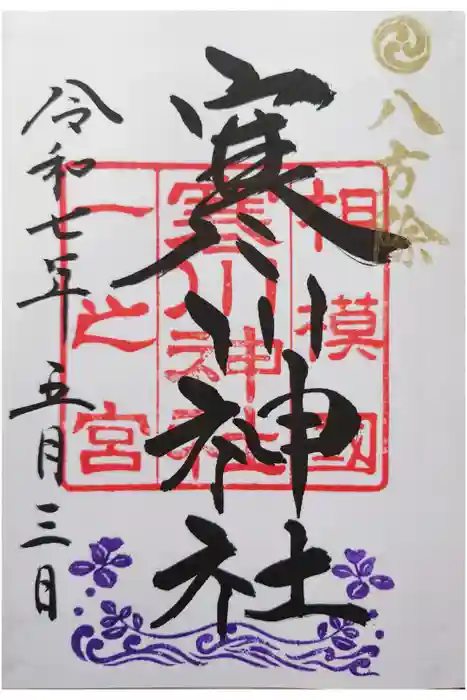 八方除
寒川神社
相模國
寒川神社
一之宮
令和七年 五月三日